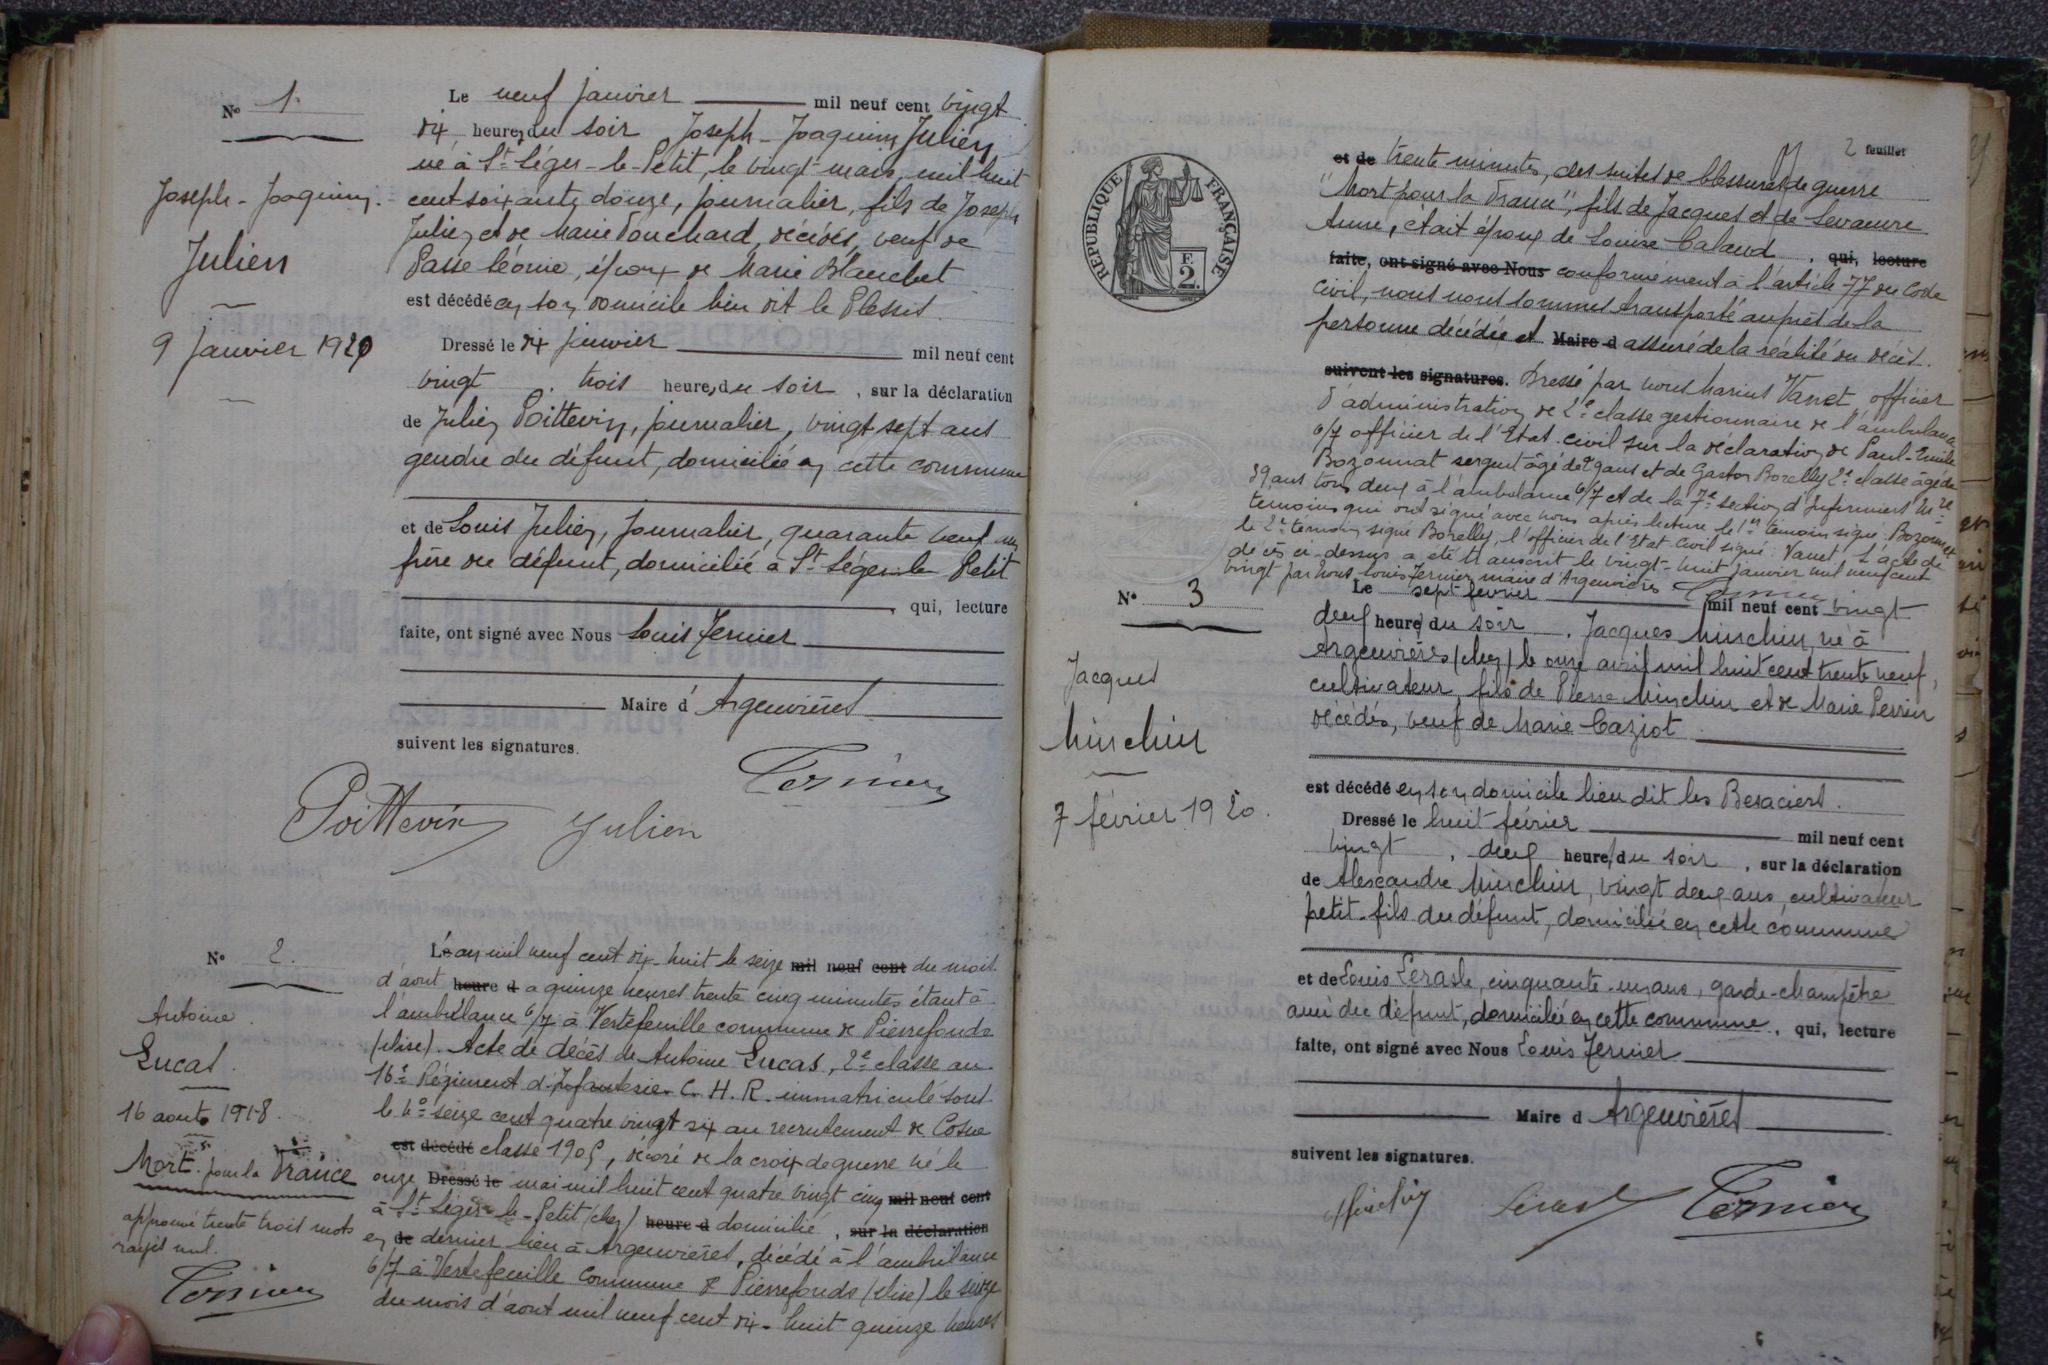 N° 1.
Joseph-Joaquim
Julien
9 Janvier 1920
Le neuf janvier mil neuf cent vingt
dix heures du soir Joseph-Joaquim Julien
né à St Léger-le-Petit, le vingt mars, mil huit
cent soixante douze, journalier, fils de Joseph
Julien et de Marie Fouchard, décédés, veuf de
Passe Léonie, époux de Marie Blanchet
est décédé en son domicile lieu dit le Plessis.
Dressé le dix janvier mil neuf cent
vingt, trois heures du soir, sur la déclaration
de Julien Poittevin, journalier, vingt sept ans
gendre du défunt, domicilié en cette commune
et de Louis Julien, journalier, quarante neuf ans
frère du défunt, domicilié à St Léger le Petit
, qui, lecture
faite, ont signé avec Nous Louis Ternier
Maire d'Argenvières
suivent les signatures.
Ternier
Poittevin Julien
N° 2.
Antoine
Lucas.
16 août 1918.
Mort pour la France
approuvé trente trois mots
rayés nul.
Ternier
L'an mil neuf cent dix-huit le seize mil neuf cent du mois
d'août heure d a quinze heures trente cinq minutes étant à
l'ambulance 6/7 à Vertefeuille commune de Pierrefonds
(Oise). Acte de décès de Antoine Lucas, 2e classe au
16e Régiment d'Infanterie C. H. R. immatriculé sous
le No seize cent quatre vingt six au recrutement de Cosne
est décédé classe 1905, décoré de la croix de guerre né le
onze Dressé le mai mil huit cent quatre vingt cinq mil neuf cent
à St Léger-le-Petit (cher) heure d domicilié, sur la déclaration
en de dernier lieu à Argenvières, décédé à l'ambulance
6/7 à Vertefeuille commune de Pierrefonds (Oise) le seize
du mois d'août mil neuf cent dix-huit quinze heures
2 feuillet
RÉPUBLIQUE FRANÇAISE
F.
2.
et de trente minutes, des suites de blessures de guerre
"Mort pour la France", fils de Jacques et de Levaeuvre
Anne, était époux de Louise Calaud, qui, lecture
faite, ont signé avec Nous conformément à l'article 77 du Code
civil, nous nous sommes transporté auprès de la
personne décédée et Maire d assuré de la réalité du décès.
suivent les signatures. Dressé par nous Marius Vanet, officier
d'administration de 2e classe gestionnaire de l'ambulance
6/7 officier de l'Etat-civil sur la déclaration de Paul-Emile
Bozonnat sergent âgé de ans et de Gaston Borelly 2e classe âgé de
39 ans tous deux à l'ambulance 6/7 et de la 7e section d'Infirmiers Mre
témoins qui ont signé avec nous après lecture le 1er témoin signé: Bozonnat
le 2e témoin signé Borelly, l'officier de l'Etat-civil signé: Vanet L'acte de
décès ci-dessus a été transcrit le vingt-huit janvier mil neuf cent
vingt par Nous Louis Ternier maire d'Argenvières Ternier
N° 3
Jacques
Minchin
7 février 1920.
Le sept février mil neuf cent vingt
deux heures du soir, Jacques Minchin, né à
Argenvières (cher) le onze avril mil huit cent trente neuf,
cultivateur, fils de Pierre Minchin et de Marie Perrin
décédés, veuf de Marie Caziot
est décédé en son domicile lieu dit les Besaciers.
Dressé le huit février mil neuf cent
vingt, deux heures du soir, sur la déclaration
de Alexandre Minchin, vingt deux ans, cultivateur
petit-fils du défunt, domicilié en cette commune
et de Louis Lerasle, cinquante un ans, garde-champêtre
ami du défunt, domicilié en cette commune, qui, lecture
faite, ont signé avec Nous Louis Ternier
Maire d Argenvières
suivent les signatures.
Minchin Lerasle Ternier